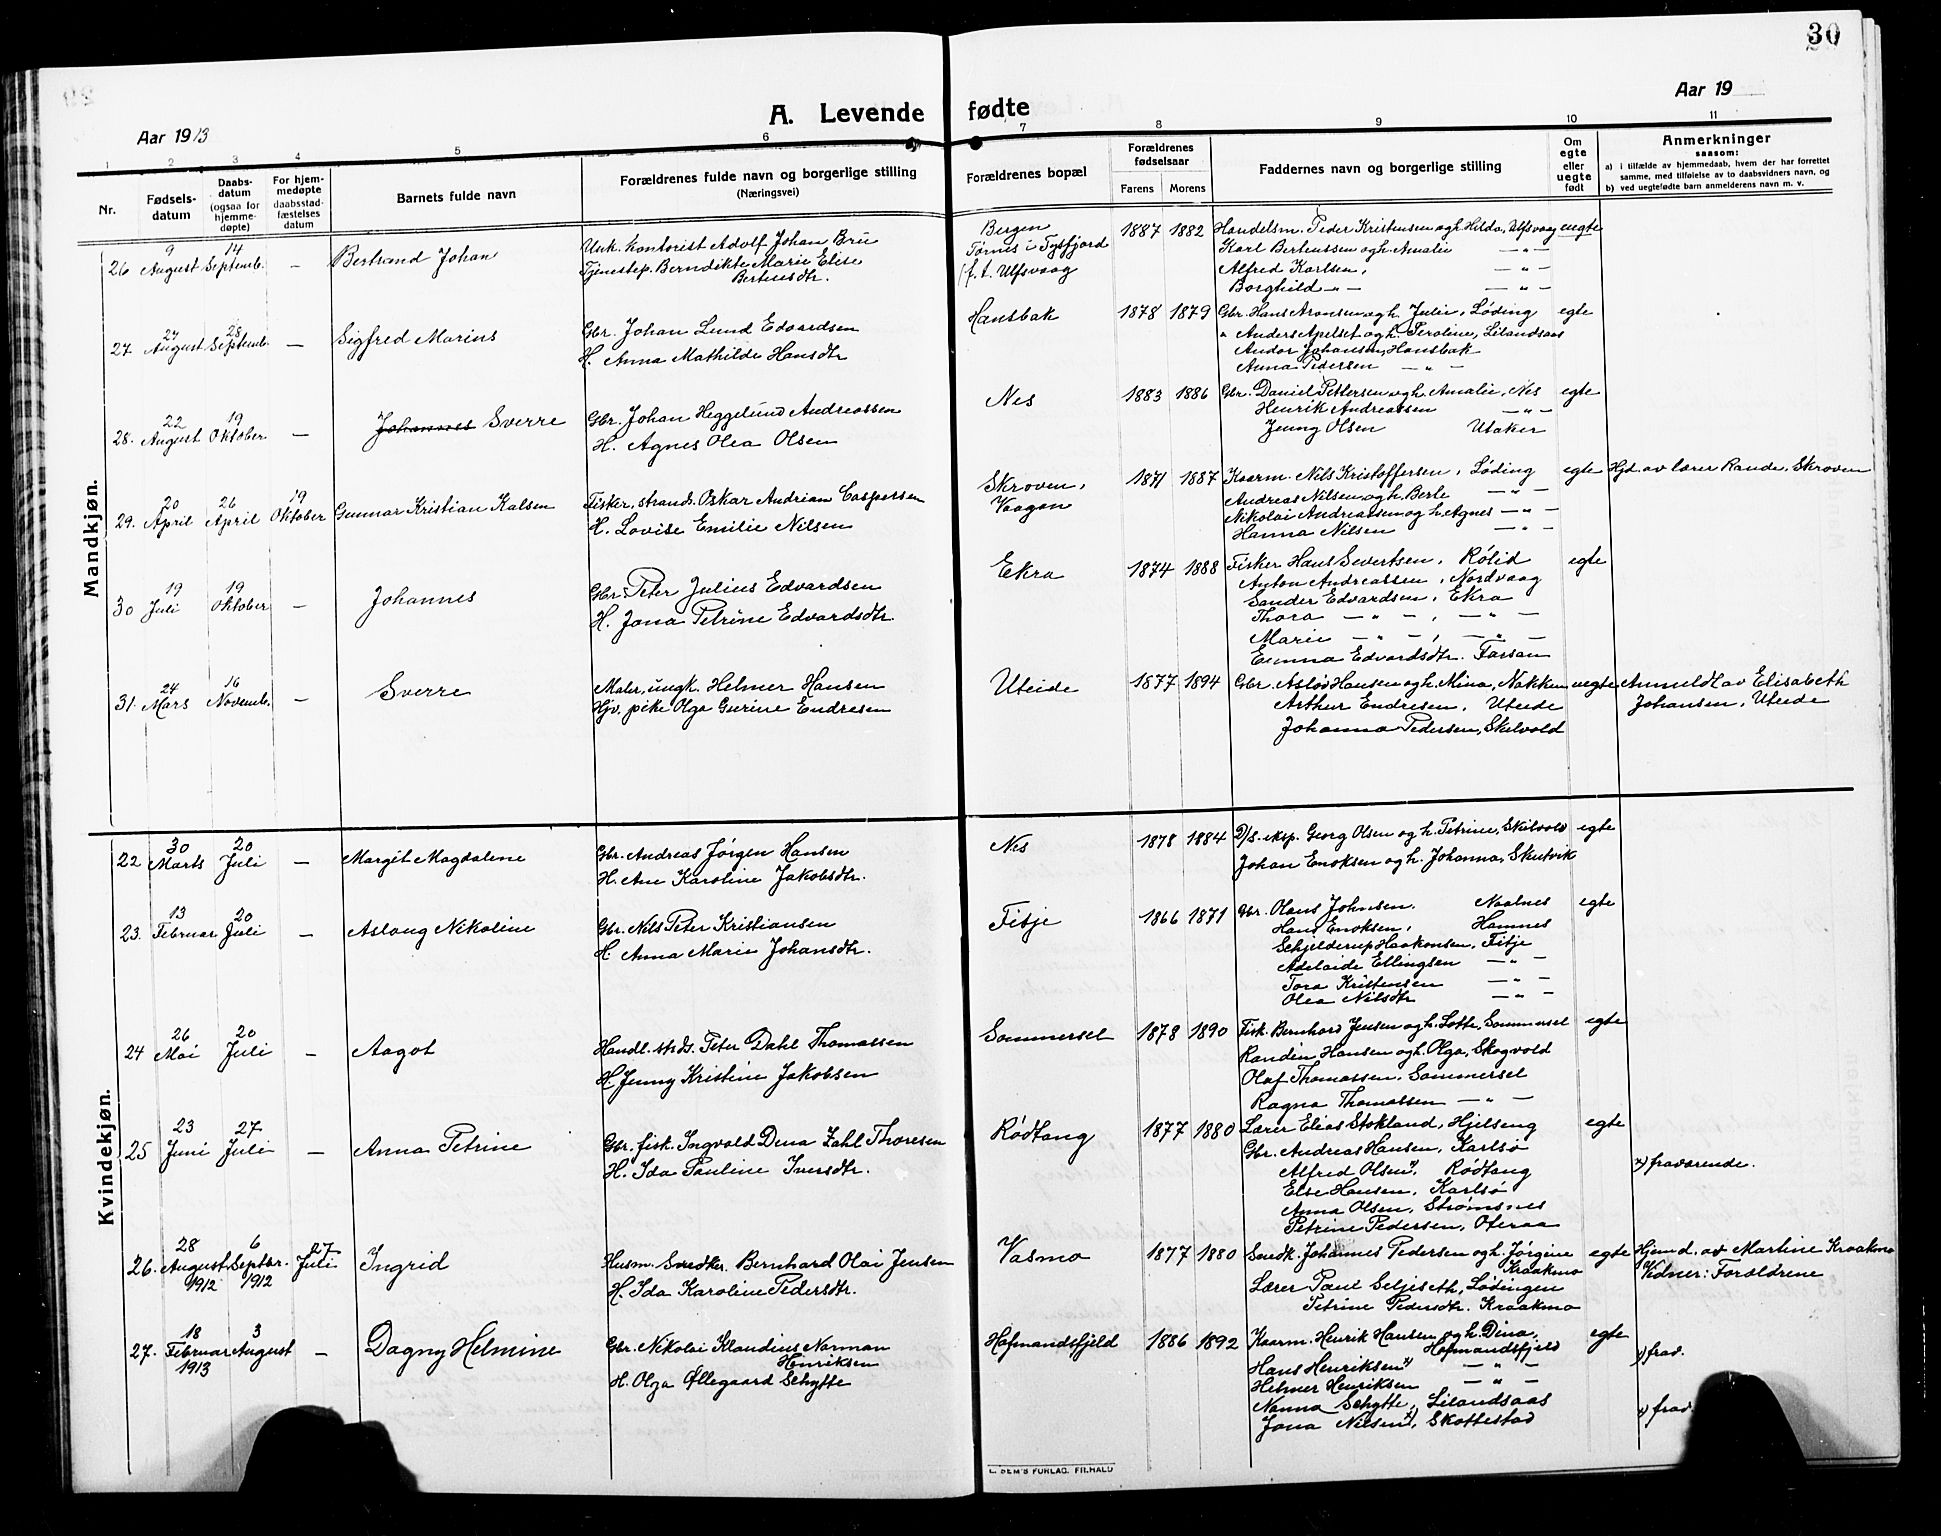 30
A. Levende fødte
Aar 1913
Aar 19
1 2 3 4 5 6 7 8 9 10 11
Nr.
Fødsels-datum
Daabs-datum (ogsaa for hjemme-døpte)
For hjem-medøpte daabsstad-fæstelses datum
Barnets fulde navn
Forældrenes fulde navn og borgerlige stilling
(Næringsvei)
Forældrenes bopæl
Forældrenes fødselsaar
Farens Morens
Faddernes navn og borgerlige stilling
Om egte eller uegte født
Anmerkninger
saasom:
a) i tilfælde av hjemmedaab, hvem der har forrettet
samme, med tilføielse av to daabsvidners navn, og
b) ved uegtefødte barn anmelderens navn m. v.
Mandkjøn.
26 9 August 14 Septemb. — Bertrand Johan
Unk. kontorist Adolf Johan Bru
Tjenestep. Berndikte Marie Elise
Berteusdtr.
Bergen
Tørnes i Tysfjord
(f. t. Ulfsvaag
1887 1882
Handelsm. Peder Kristensen og h. Hilda, Ulfsvaag uegte
Karl Berteussen og h. Amalie — " —
Alfred Karlsen, — " —
Borghild — " — — " —
27. 27 August 28 Septemb. — Sigfred Marius
Gbr. Johan Lund Edvardsen
H. Anna Mathilde Hansdtr
Hansbak
1878 1879
Gbr. Hans Aronsen og h. Julie, Løding egte
" Anders Apelset og h. Peroline, Lilandsaas
Andor Johansen, Hansbak
Anna Pedersen — " —
28. 22 August 19 Oktober. — Johannes Sverre
Gbr. Johan Heggelund Andreassen
H. Agnes Olea Olsen
Nes
1883 1886
Gbr. Daniel Pettersen og h. Amalie, Nes egte
Henrik Andreassen — " —
Jenny Olsen Utaker
29. 20 April 26 April 19 Oktober Gunnar Kristian Kalsen
Fisker, strands. Oskar Andrian Caspersen
H. Lovise Emilie Nilsen
Skroven,
Vaagan
1871 1887
Kaarm. Nils Kristoffersen, Løding egte
Andreas Nilsen og h. Berle — " —
Nikolai Andreassen og h. Agnes — " —
Hanna Nilsen — " —
Hjd. av lærer Rande, Skroven
30 19 Juli 19 Oktober — Johannes
Gbr. Peter Julius Edvardsen
H. Jona Petrine Edvardsdtr.
Ekra
1874 1888
Fisker Hans Severtsen, Rølid egte
Anton Andreassen, Nordvaag
Sander Edvardsen, Ekra
Thora — " —, — " —
Marie — " —, — " —
Emma Edvardsdtr. Farsan
31. 24 Mars 16 Novemb. — Sverre
Maler, ungk. Helmer Hansen
Hjv. pike Olga Gurine Endresen
Uteide
1877 1894
Gbr. Asløv Hansen og h. Mina, Nakken uegte
Arthur Endresen, Uteide
Johanna Pedersen, Skilvold
Anmeldt av Elisabeth
Johansen, Uteide
Kvindekjøn.
22 30 Marts 20 Juli — Margit Magdalene
Gbr. Andreas Jørgen Hansen
H. Ane Karoline Jakobsdtr.
Nes
1878 1884
D/S. eksp. Georg Olsen og h. Petrine, Skilvold egte
Johan Enoksen og h. Johanna, Skutvik
23. 13 Februar 20 Juli — Aslaug Nikoline
Gbr. Nils Peter Kristiansen
H. Anna Marie Johansdtr.
Fitje
1866 1871
Gbr. Olaus Johnsen. Naalnes egte
Hans Enoksen, Hamnes
Schjelderup Haakonsen, Fitje
Adelaide Ellingsen — " —
Tora Kristensen — " —
Olea Nilsdtr — " —
24 26 Mai 20 Juli — Aagot
Handl. strds. Peter Dahl Thomassen
H. Jenny Kristine Jakobsen
Sommersel
1878 1890
Fisk. Bernhard Jensen og h. Lotte, Sommersel egte
Randin Hansen og h. Olga, Skogvold
Olaf Thomassen, Sommersel
Ragna Thomassen — " —
25 23 Juni 27 Juli — Anna Petrine
Gbr. fisk. Ingvald Dena Zahl Thoresen
H. Ida Pauline Iversdtr.
Rødtang
1877 1880
Lærer Elias Stokland, Hjelseng egte
Gbr. Andreas Hansen, Karlsø
Alfred Olsen x), Rødtang
Else Hansen, Karlsø
Anna Olsen, Strømsnes
Petrine Pedersen, Oteraa
x) fraværende.
26. 28 August 1912 6 Septbr. 1912 27 Juli Ingrid
Husm. Snedker Bernhard Olai Jensen
H. Ida Karoline Pedersdtr.
Vasmo
1877 1880
Snedk. Johannes Pedersen og h. Jørgine egte
Kraakmo
Lærer Paul Seljeseth, Lødingen
Petrine Pedersdtr. Kraakmo
Hjemd. av Martine Kraakmo
Vidner: Forældrene
27. 18 Februar 1913 3 August — Dagny Helmine
Gbr. Nikolai Klaudius Norman
Henriksen
H. Olga Øllegaard Schytte
Hofmandsfjeld
1886 1892
Kaarm. Henrik Hansen og h. Dina, egte
Hofmandsfjeld
Hans Henriksen x) — " —
Helmer Henriksen — " —
Nanna Schytte, Lilandsaas
Jona Nilsen x), Skottestad
x) frav.
x) frav
E. SEM'S FORLAG. FR.HALD